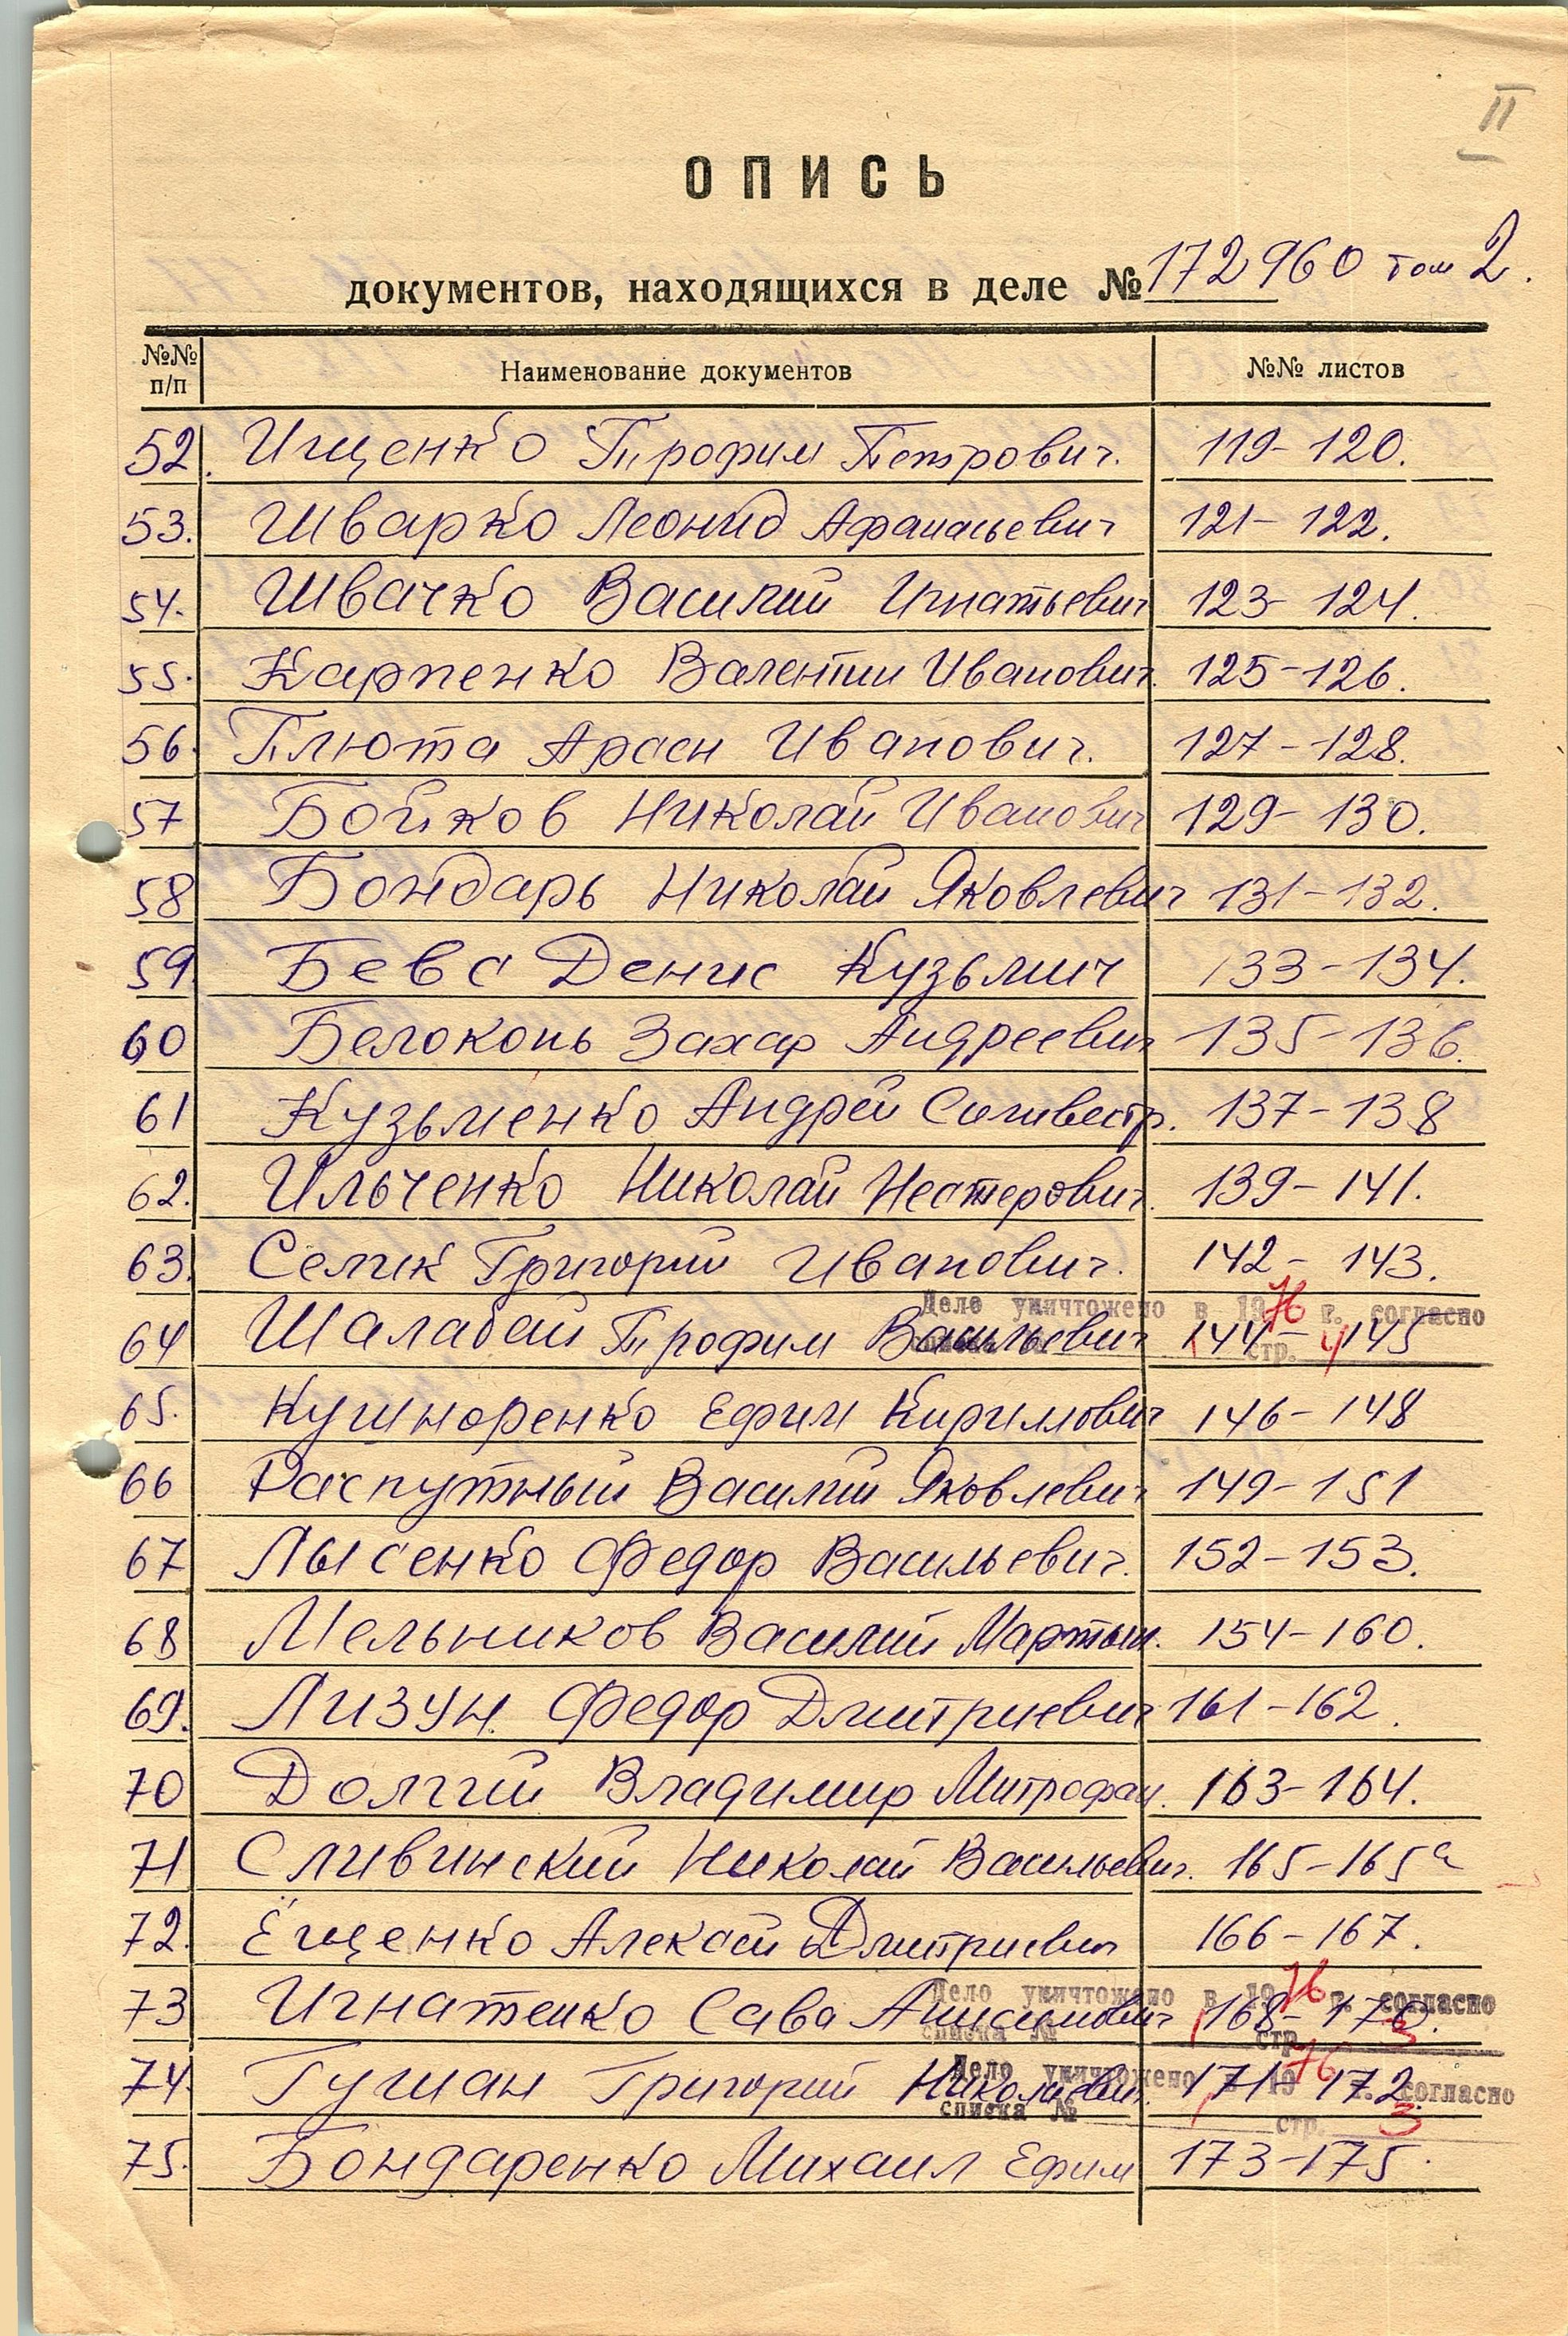 II
ОПИСЬ
документов, находящихся в деле № 172960 том 2.
№№ п/п Наименование документов №№ листов
52. Ищенко Трофим Петрович. 119-120.
53. Шварко Леонид Афанасьевич 121-122.
54. Швачко Василий Игнатьевич 123-124.
55. Карпенко Валентин Иванович. 125-126.
56. Плюта Арсен Иванович. 127-128.
57 Бойков Николай Иванович 129-130.
58 Бондарь Николай Яковлевич 131-132.
59 Бевс Денис Кузьмич 133-134.
60 Белоконь Захар Андреевич 135-136.
61 Кузьменко Андрей Силивестр. 137-138
62. Ильченко Николай Нестерович. 139-141.
63. Селик Григорий Иванович. 142-143.
Дело уничтожено в 1976 г. согласно
64 Шалабай Трофим Васильевич 144-145
стр. 4
65. Кушноренко Ефим Кириллович 146-148
66 Распутный Василий Яковлевич 149-151
67 Лысенко Федор Васильевич. 152-153.
68 Мельников Василий Мартын. 154-160.
69. Лизун Федор Дмитриевич 161-162.
70 Долгий Владимир Митрофан. 163-164.
71 Сливинский Николай Васильевич. 165-165а
72. Ёщенко Алексей Дмитриевич 166-167.
Дело уничтожено в 1976 г. согласно
73 Игнатенко Сава Анисимович 168-170.
списка № стр. 3
Дело уничтожено в 1976 г. согласно
74. Гушан Григорий Николаевич. 171-172.
списка № стр. 3
75. Бондаренко Михаил Ефим 173-175.